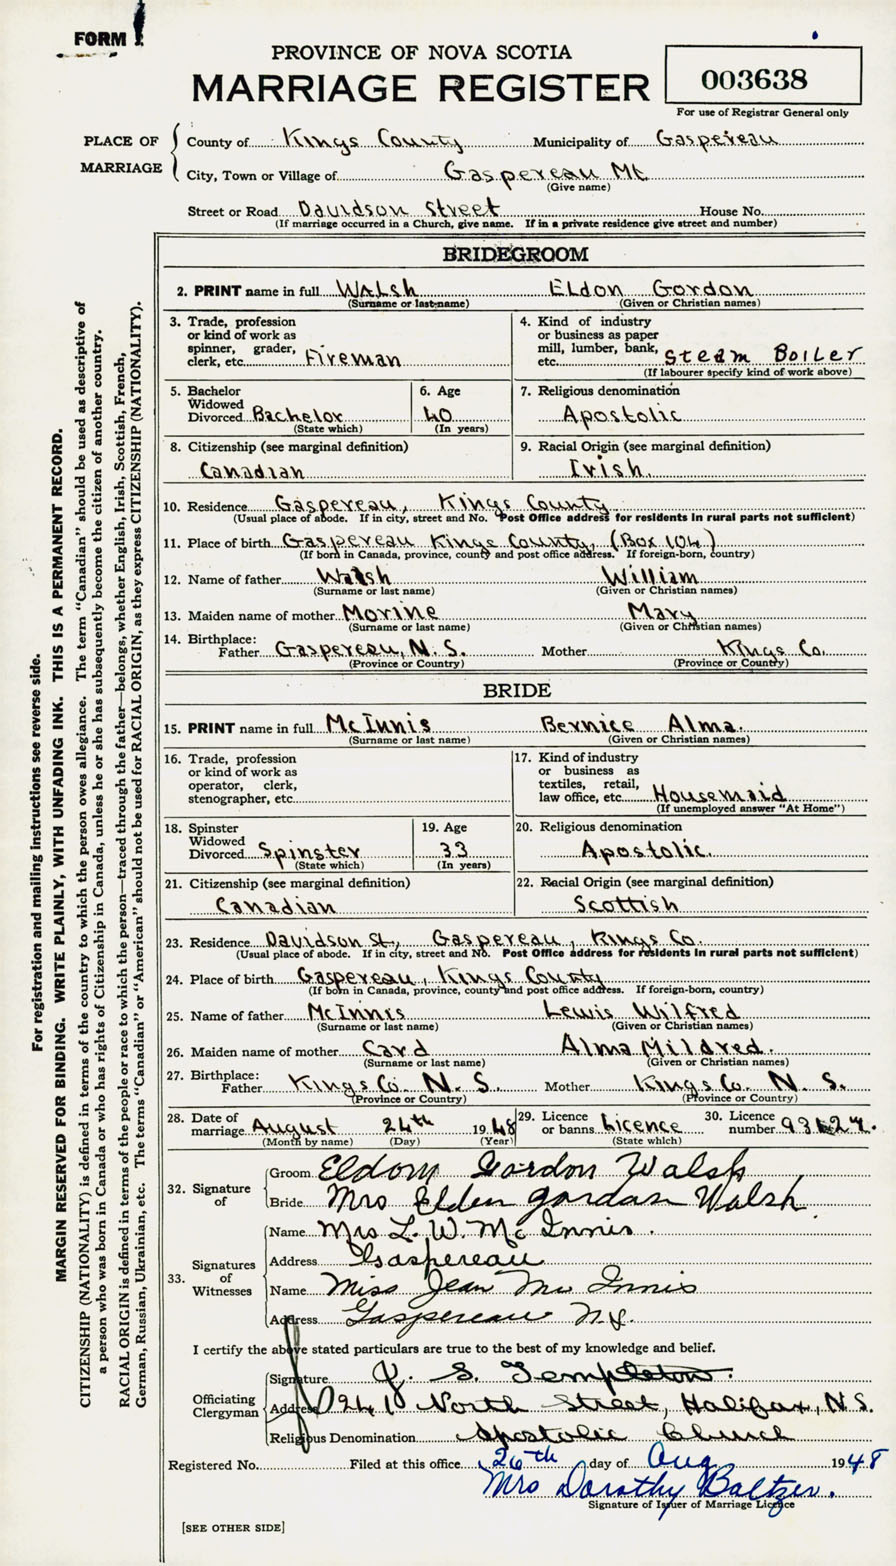 FORM
PROVINCE OF NOVA SCOTIA
MARRIAGE REGISTER
003638
For use of Registrar General only
PLACE OF MARRIAGE
County of Kings County Municipality of Gaspereau
City, Town or Village of Gaspereau Mt
(Give name)
Street or Road Davidson Street House No.
(If marriage occurred in a Church, give name. If in a private residence give street and number)
BRIDEGROOM
2. PRINT name in full Walsh Eldon Gordon
(Surname or last name) (Given or Christian names)
3. Trade, profession
or kind of work as
spinner, grader,
clerk, etc. Fireman
4. Kind of industry
or business as paper
mill, lumber, bank,
etc. Steam Boiler
(If labourer specify kind of work above)
5. Bachelor
Widowed
Divorced Bachelor
(State which)
6. Age
40
(In years)
7. Religious denomination
Apostolic
8. Citizenship (see marginal definition)
Canadian
9. Racial Origin (see marginal definition)
Irish
10. Residence Gaspereau, Kings County
(Usual place of abode. If in city, street and No. Post Office address for residents in rural parts not sufficient)
11. Place of birth Gaspereau Kings County, (Box 104)
(If born in Canada, province, county and post office address. If foreign-born, country)
12. Name of father Walsh William
(Surname or last name) (Given or Christian names)
13. Maiden name of mother Morine Mary
(Surname or last name) (Given or Christian names)
14. Birthplace:
Father Gaspereau, N.S. Mother Kings Co.
(Province or Country) (Province or Country)
BRIDE
15. PRINT name in full McInnis Bernice Alma.
(Surname or last name) (Given or Christian names)
16. Trade, profession
or kind of work as
operator, clerk,
stenographer, etc.
17. Kind of industry
or business as
textiles, retail,
law office, etc. Housemaid
(If unemployed answer "At Home")
18. Spinster
Widowed
Divorced Spinster
(State which)
19. Age
33
(In years)
20. Religious denomination
Apostolic.
21. Citizenship (see marginal definition)
Canadian
22. Racial Origin (see marginal definition)
Scottish
23. Residence Davidson St., Gaspereau, Kings Co.
(Usual place of abode. If in city, street and No. Post Office address for residents in rural parts not sufficient)
24. Place of birth Gaspereau, Kings County
(If born in Canada, province, county and post office address. If foreign-born, country)
25. Name of father McInnis Lewis Wilfred
(Surname or last name) (Given or Christian names)
26. Maiden name of mother Card Alma Mildred.
(Surname or last name) (Given or Christian names)
27. Birthplace:
Father Kings Co. N.S. Mother Kings Co. N.S.
(Province or Country) (Province or Country)
28. Date of
marriage August 24th 1948
(Month by name) (Day) (Year)
29. Licence
or banns Licence
(State which)
30. Licence
number
32. Signature of
Groom Eldon Gordon Walsh
Bride Mrs Elden Gordan Walsh
33. Signatures of Witnesses
Name Mrs L. W. McInnis.
Address Gaspereau
Name Miss Jean McInnis
Address Gaspereau N.S.
I certify the above stated particulars are true to the best of my knowledge and belief.
Officiating Clergyman
Signature S. Templeton.
Address 241 North Street, Halifax, N.S.
Religious Denomination Apostolic Church
Registered No. Filed at this office 26th day of Aug 1948
Mrs Dorothy Baltzer.
Signature of Issuer of Marriage Licence
[SEE OTHER SIDE]
For registration and mailing instructions see reverse side.
MARGIN RESERVED FOR BINDING. WRITE PLAINLY, WITH UNFADING INK. THIS IS A PERMANENT RECORD.
CITIZENSHIP (NATIONALITY) is defined in terms of the country to which the person owes allegiance. The term "Canadian" should be used as descriptive of
a person who was born in Canada or who has rights of Citizenship in Canada, unless he or she has subsequently become the citizen of another country.
RACIAL ORIGIN is defined in terms of the people or race to which the person—traced through the father—belongs, whether English, Irish, Scottish, French,
German, Russian, Ukrainian, etc. The terms "Canadian" or "American" should not be used for RACIAL ORIGIN, as they express CITIZENSHIP (NATIONALITY).